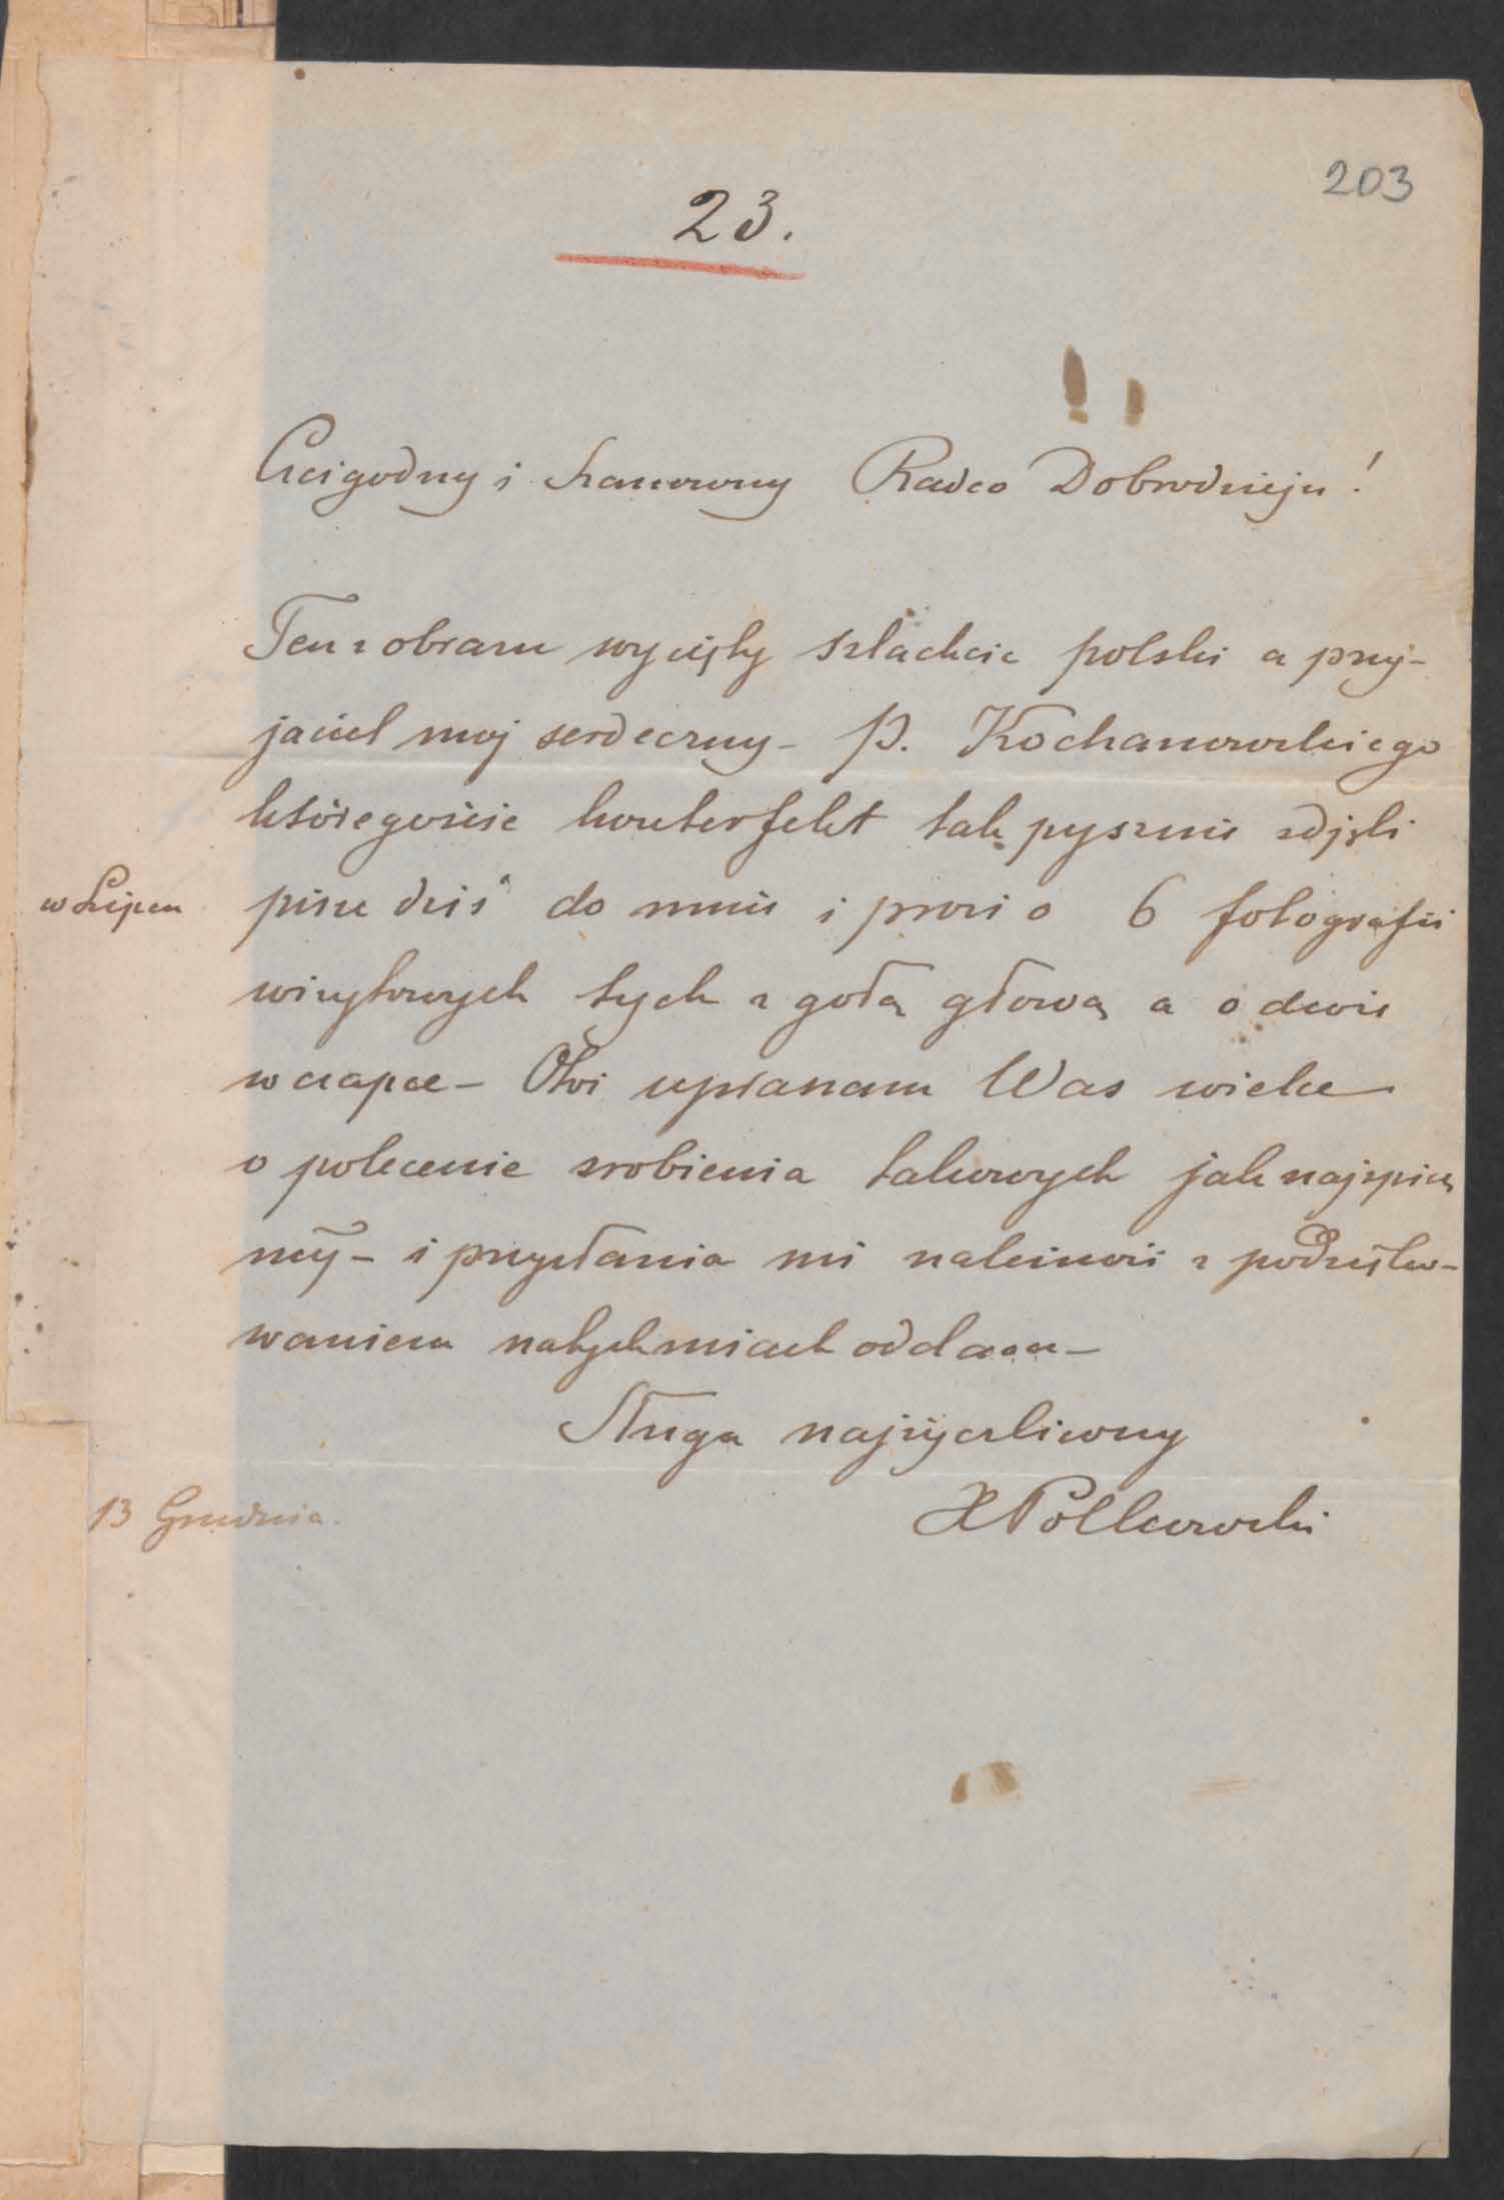 203
23.
Czcigodny i Szanowny Radco Dobrodzieju!
Ten z obrazu wycięty szlachcic polski a przy-
jaciel moj serdeczny - P. Kochanowskiego
któregoście konterfekt tak pysznie zdjęli
w Lipcu pisze dziś do mnie i prosi o 6 fotografii
wizytowych tych z gołą głową a o dwie
w czapce - Otoż upraszam Was wielce
o polecenie zrobienia takowych jak najspiesz
niej - i przysłania mi należność z podzięko-
waniem natychmiast oddam -
Sługa najżyczliwszy
13 Grudnia. X Polkowski